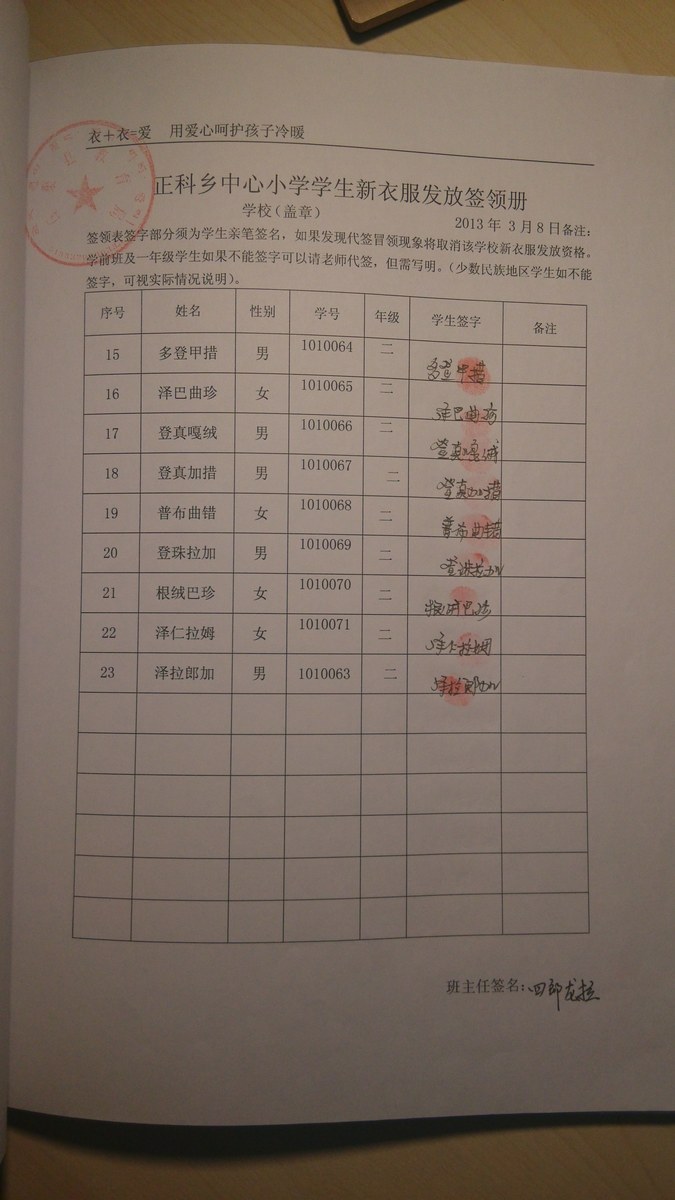 衣+衣=爱 用爱心呵护孩子冷暖
正科乡中心小学学生新衣服发放签领册
学校(盖章) 2013 年 3 月 8 日备注:
签领表签字部分须为学生亲笔签名,如果发现代签冒领现象将取消该学校新衣服发放资格。
学前班及一年级学生如果不能签字可以请老师代签,但需写明。(少数民族地区学生如不能
签字,可视实际情况说明)。
序号 姓名 性别 学号 年级 学生签字 备注
15 多登甲措 男 1010064 二 多登甲措
16 泽巴曲珍 女 1010065 二 泽巴曲珍
17 登真嘎绒 男 1010066 二 登真嘎绒
18 登真加措 男 1010067 二 登真加措
19 普布曲错 女 1010068 二 普布曲错
20 登珠拉加 男 1010069 二 登珠拉加
21 根绒巴珍 女 1010070 二 根绒巴珍
22 泽仁拉姆 女 1010071 二 泽仁拉姆
23 泽拉郎加 男 1010063 二 泽拉郎加
班主任签名:四郎龙拉